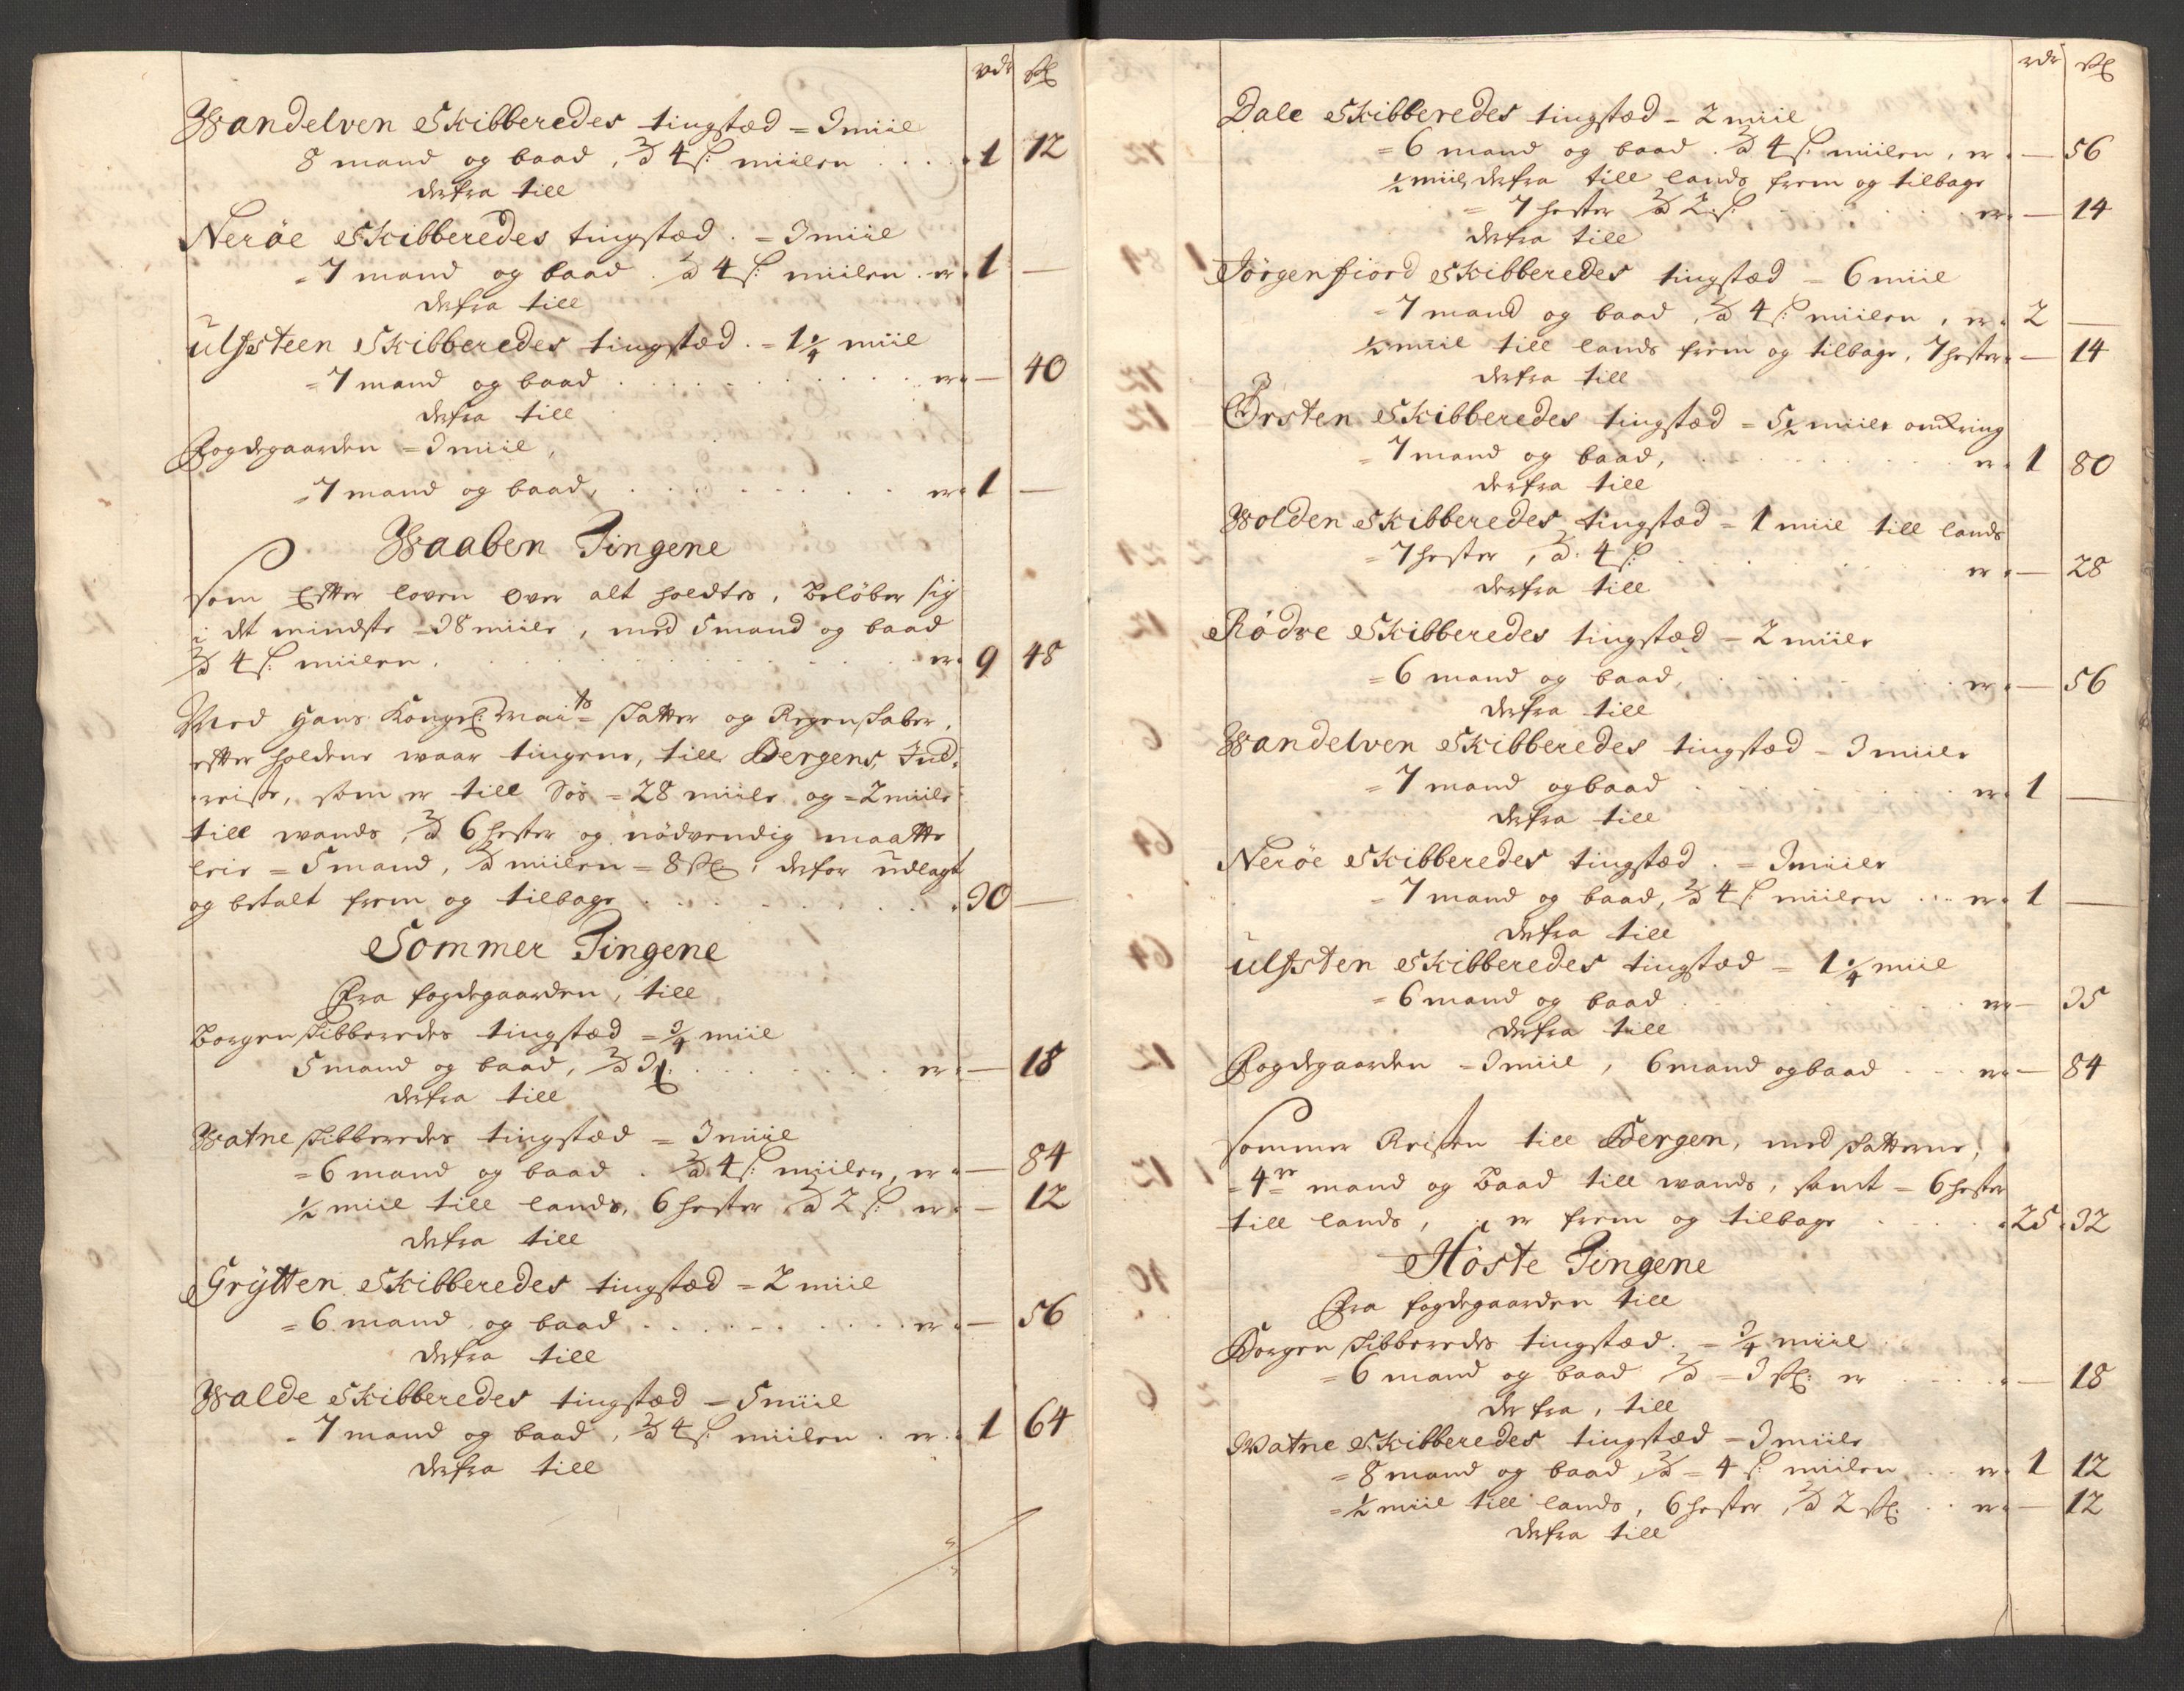 rdr sk
Wandelven Skibberedes tingstæd = 3 miil
8 mand og baad, â 4 s: miilen . . . . 1 12
derfra till
Nerøe Skibberedes tingstæd. = 3 miil
= 7 mand og baad. â 4 s: miilen. er. 1 —
derfra till
Ulfsteen Skibberedes tingstæd. = 1 1/4 miil
= 7 mand og baad . . . . er. — 40
derfra till
Fogdegaarden = 3 miil,
= 7 mand og baad, . . . . er. 1 —
Waaben Tingene
Som Efter loven over alt holdtes, beløber sig
i det mindste = 38 miile, med 5 mand og baad
â 4 s: miilen. . . . . er. 9 48
Med Hans Kongel: Mai:ts skatter og Regenskaber,
efter holdene waar tingene, till Bergens Ind-
reise, som er till Søs = 28 miile og = 2 miile
till wands, â 6 hester og nødvendig maatte
leie = 5 mand, â miilen = 8 sk, derfor udlagt
og betalt frem og tilbage . . . . 30 —
Sommer Tingene
Fra fogdegaarden, till
Borgen skibberedes tingstæd = 3/4 miil
5 mand og baad, â 3 s: . . . . er. — 18
derfra till
Watne skibberedes tingstæd = 3 miil
= 6 mand og baad. â 4 s: miilen, er. — 84
1/2 miil till lands, 6 hester â 2 s: er. — 12
derfra till
Grÿtten Skibberedes tingstæd = 2 miil
= 6 mand og baad . . . . er. — 56
derfra till
Walde Skibberedes tingstæd = 5 miil
= 7 mand og baad, â 4 s: miilen. er. 1 64
derfra till
rdr sk
Dale Skibberedes tingstæd = 2 miil
= 6 mand og baad. â 4 s: miilen, er. — 56
1/2 miil derfra till lands frem og tilbage
= 7 hester â 2 s: . . . . er. — 14
derfra till
Jörgenfiord Skibberedes tingstæd = 6 miil
= 7 mand og baad, â 4 s: miilen, er. 2 —
1/2 miil till lands frem og tilbage, 7 hester. — 14
derfra till
Ørsten Skibberedes tingstæd = 5 1/2 miile omkring
= 7 mand og baad, . . . . er. 1 80
derfra till
Wolden Skibberedes tingstæd = 1 miil till lands
= 7 hester, â 4 s: . . . . er. — 28
derfra till
Rödve Skibberedes tingstæd = 2 miile
= 6 mand og baad, . . . . er. — 56
derfra till
Wandelven Skibberedes tingstæd = 3 miile
= 7 mand og baad . . . . er. 1 —
derfra till
Nerøe Skibberedes tingstæd. = 3 miile
= 7 mand og baad, â 4 s: miilen . . . er. 1 —
derfra till
Ulfsten Skibberedes tingstæd = 1 1/4 miil
= 6 mand og baad . . . . er — 35
derfra till
Fogdegaarden = 3 miil, 6 mand og baad . . . er. — 84
Sommer Reisen till Bergen, med skatterne,
= 4re mand og Baad till wands, samt = 6 hester
till lands, er frem og tilbage . . . . 25. 32
Höste Tingene
Fra fogdegaarden till
Borgen skibberedes tingstæd. = 3/4 miil
= 6 mand og baad â = 3 sk: er . . . . — 18
derfra, till
Watne Skibberedes tingstæd = 3 miile
= 8 mand og baad, â = 4 s: miilen . . er. 1 12
= 1/2 miil till lands, 6 hester, â 2 sk: . . er. — 12
derfra till